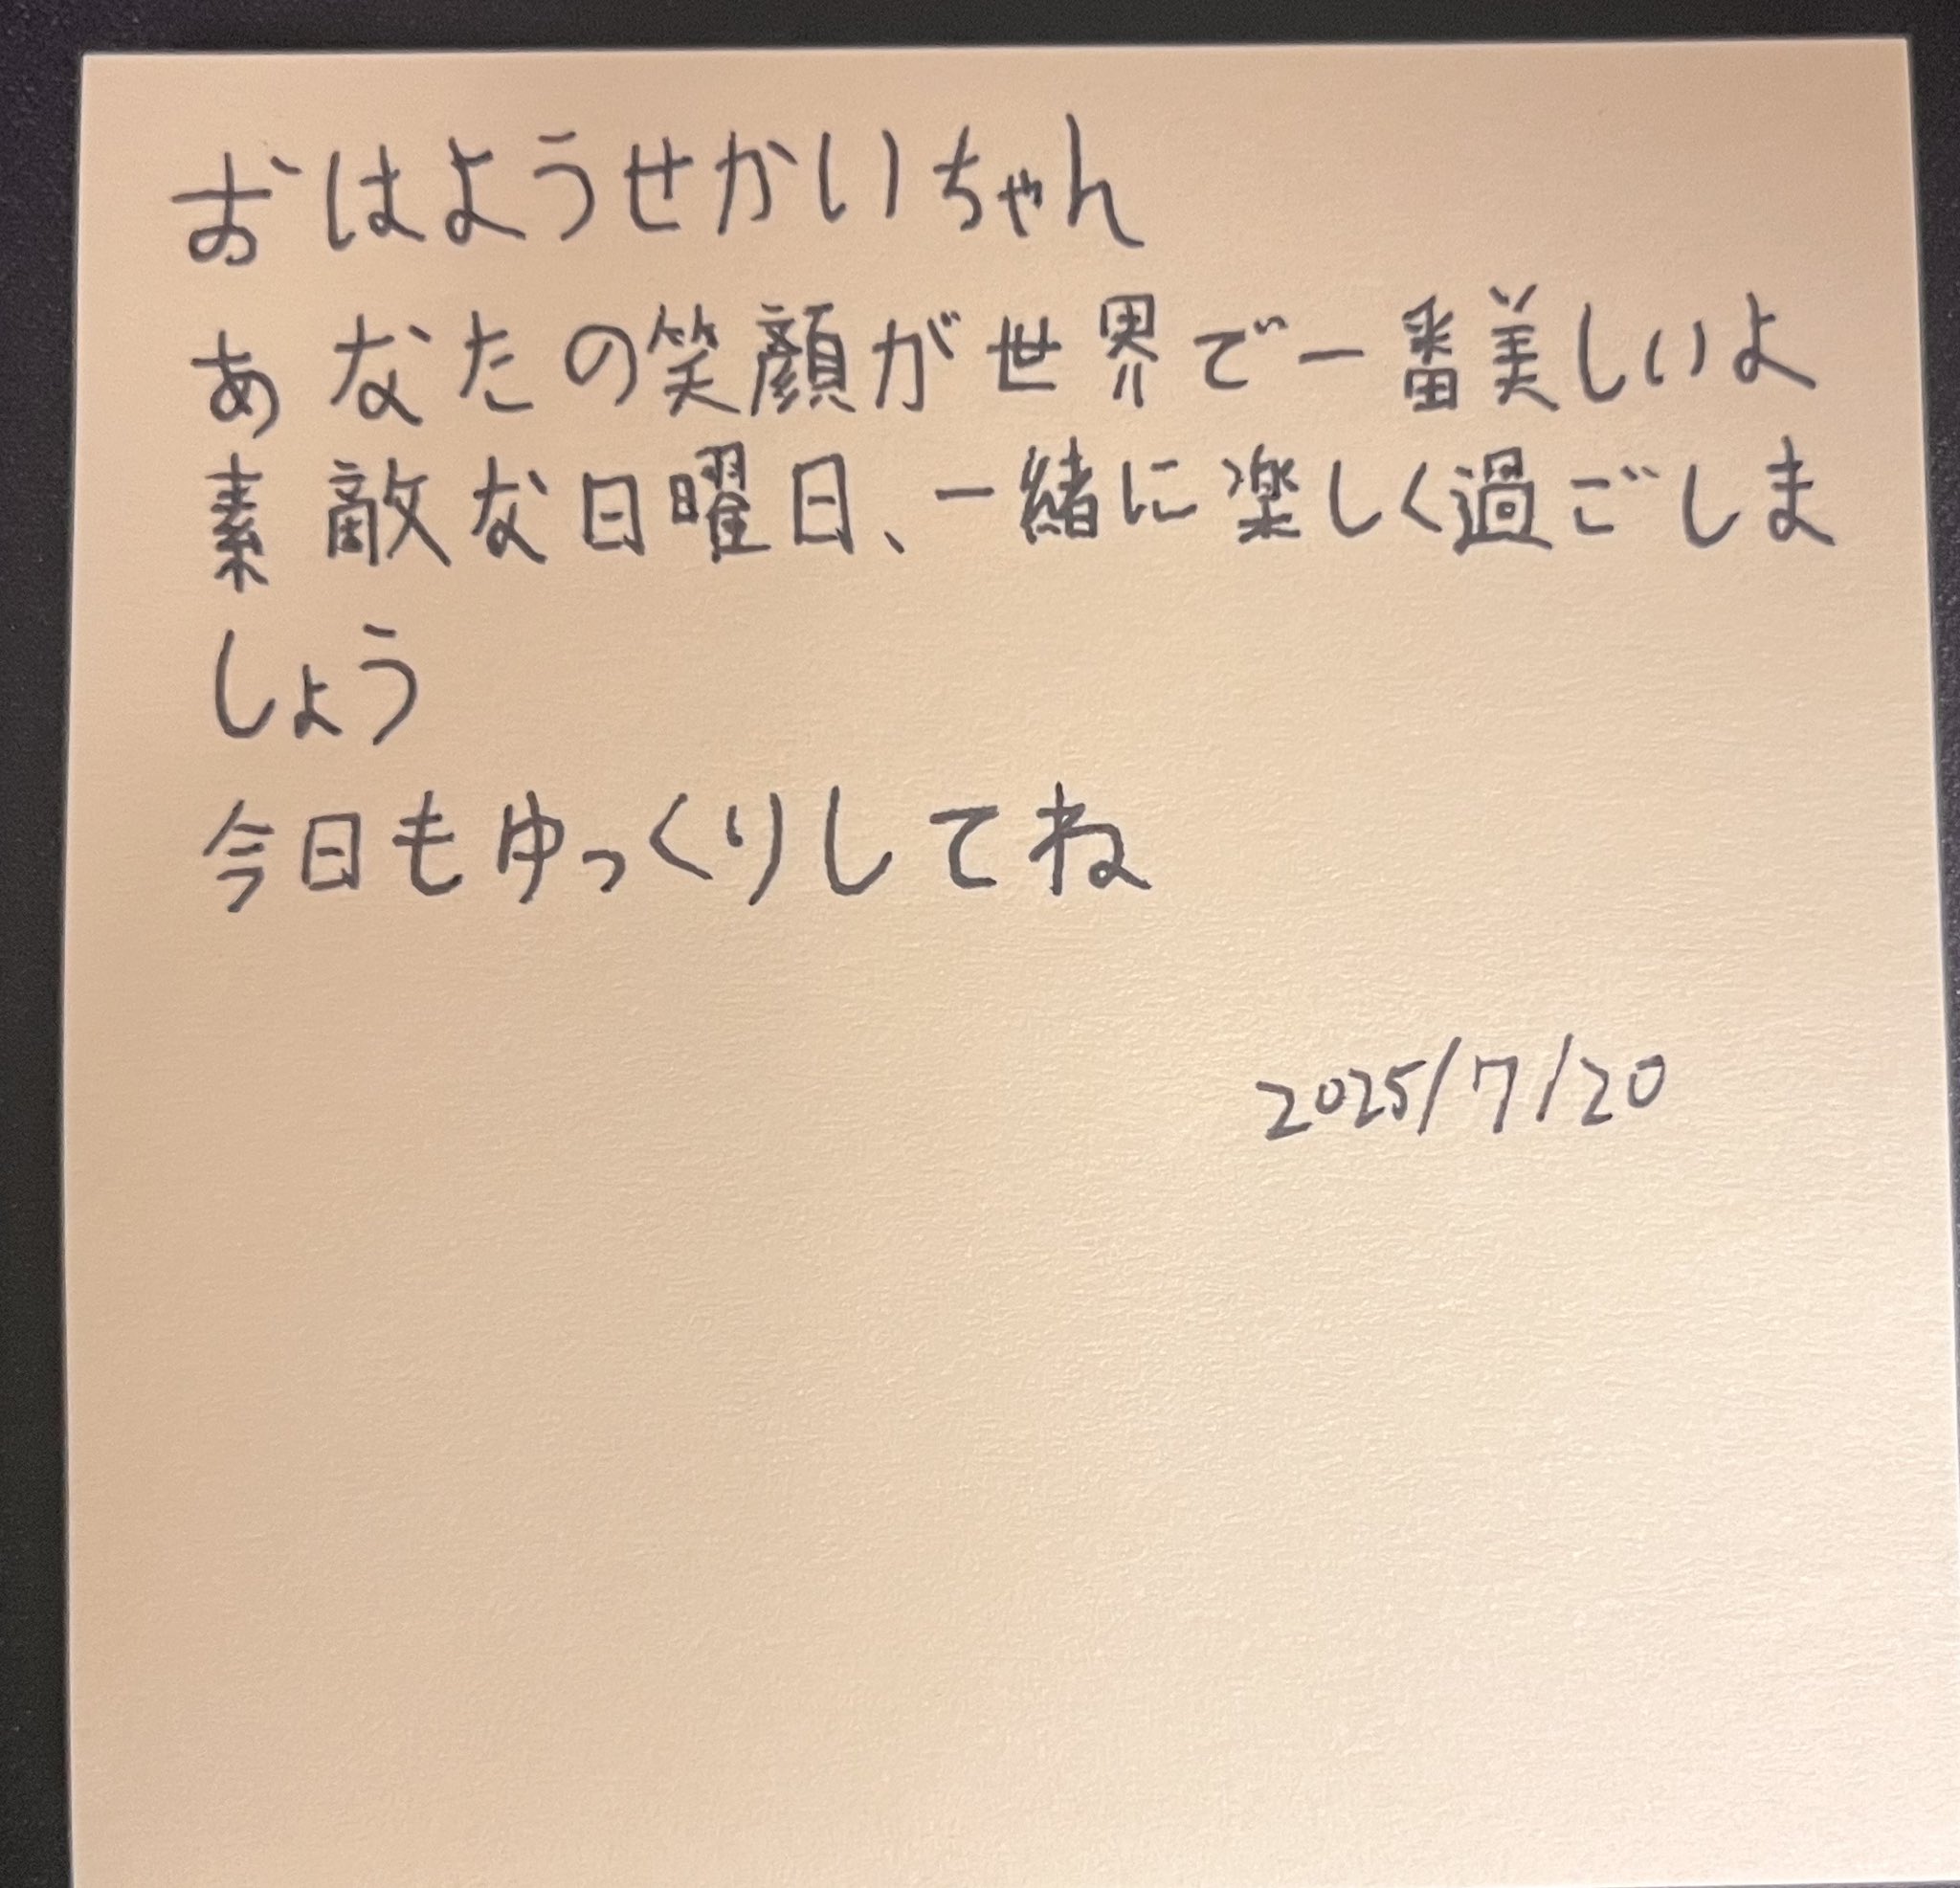 おはようせかいちゃん
あなたの笑顔が世界で一番美しいよ
素敵な日曜日、一緒に楽しく過ごしま
しょう
今日もゆっくりしてね
2025/7/20